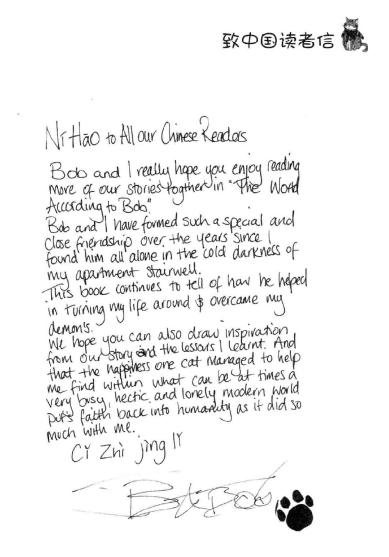 致中国读者信
Ní Hāo to All our Chinese Readers
Bob and I really hope you enjoy reading
more of our stories together in "The World
According to Bob"
Bob and I have formed such a special and
close friendship over the years since I
found him all alone in the cold darkness of
my apartment stairwell.
This book continues to tell of how he helped
in turning my life around & overcame my
demon's.
We hope you can also draw inspiration
from our story and the lessons I learnt. And
that the happiness one cat managed to help
me find within what can be at times a
very busy, hectic and lonely modern world
put's faith back into humanity as it did so
much with me.
Cǐ Zhì jìng lǐ